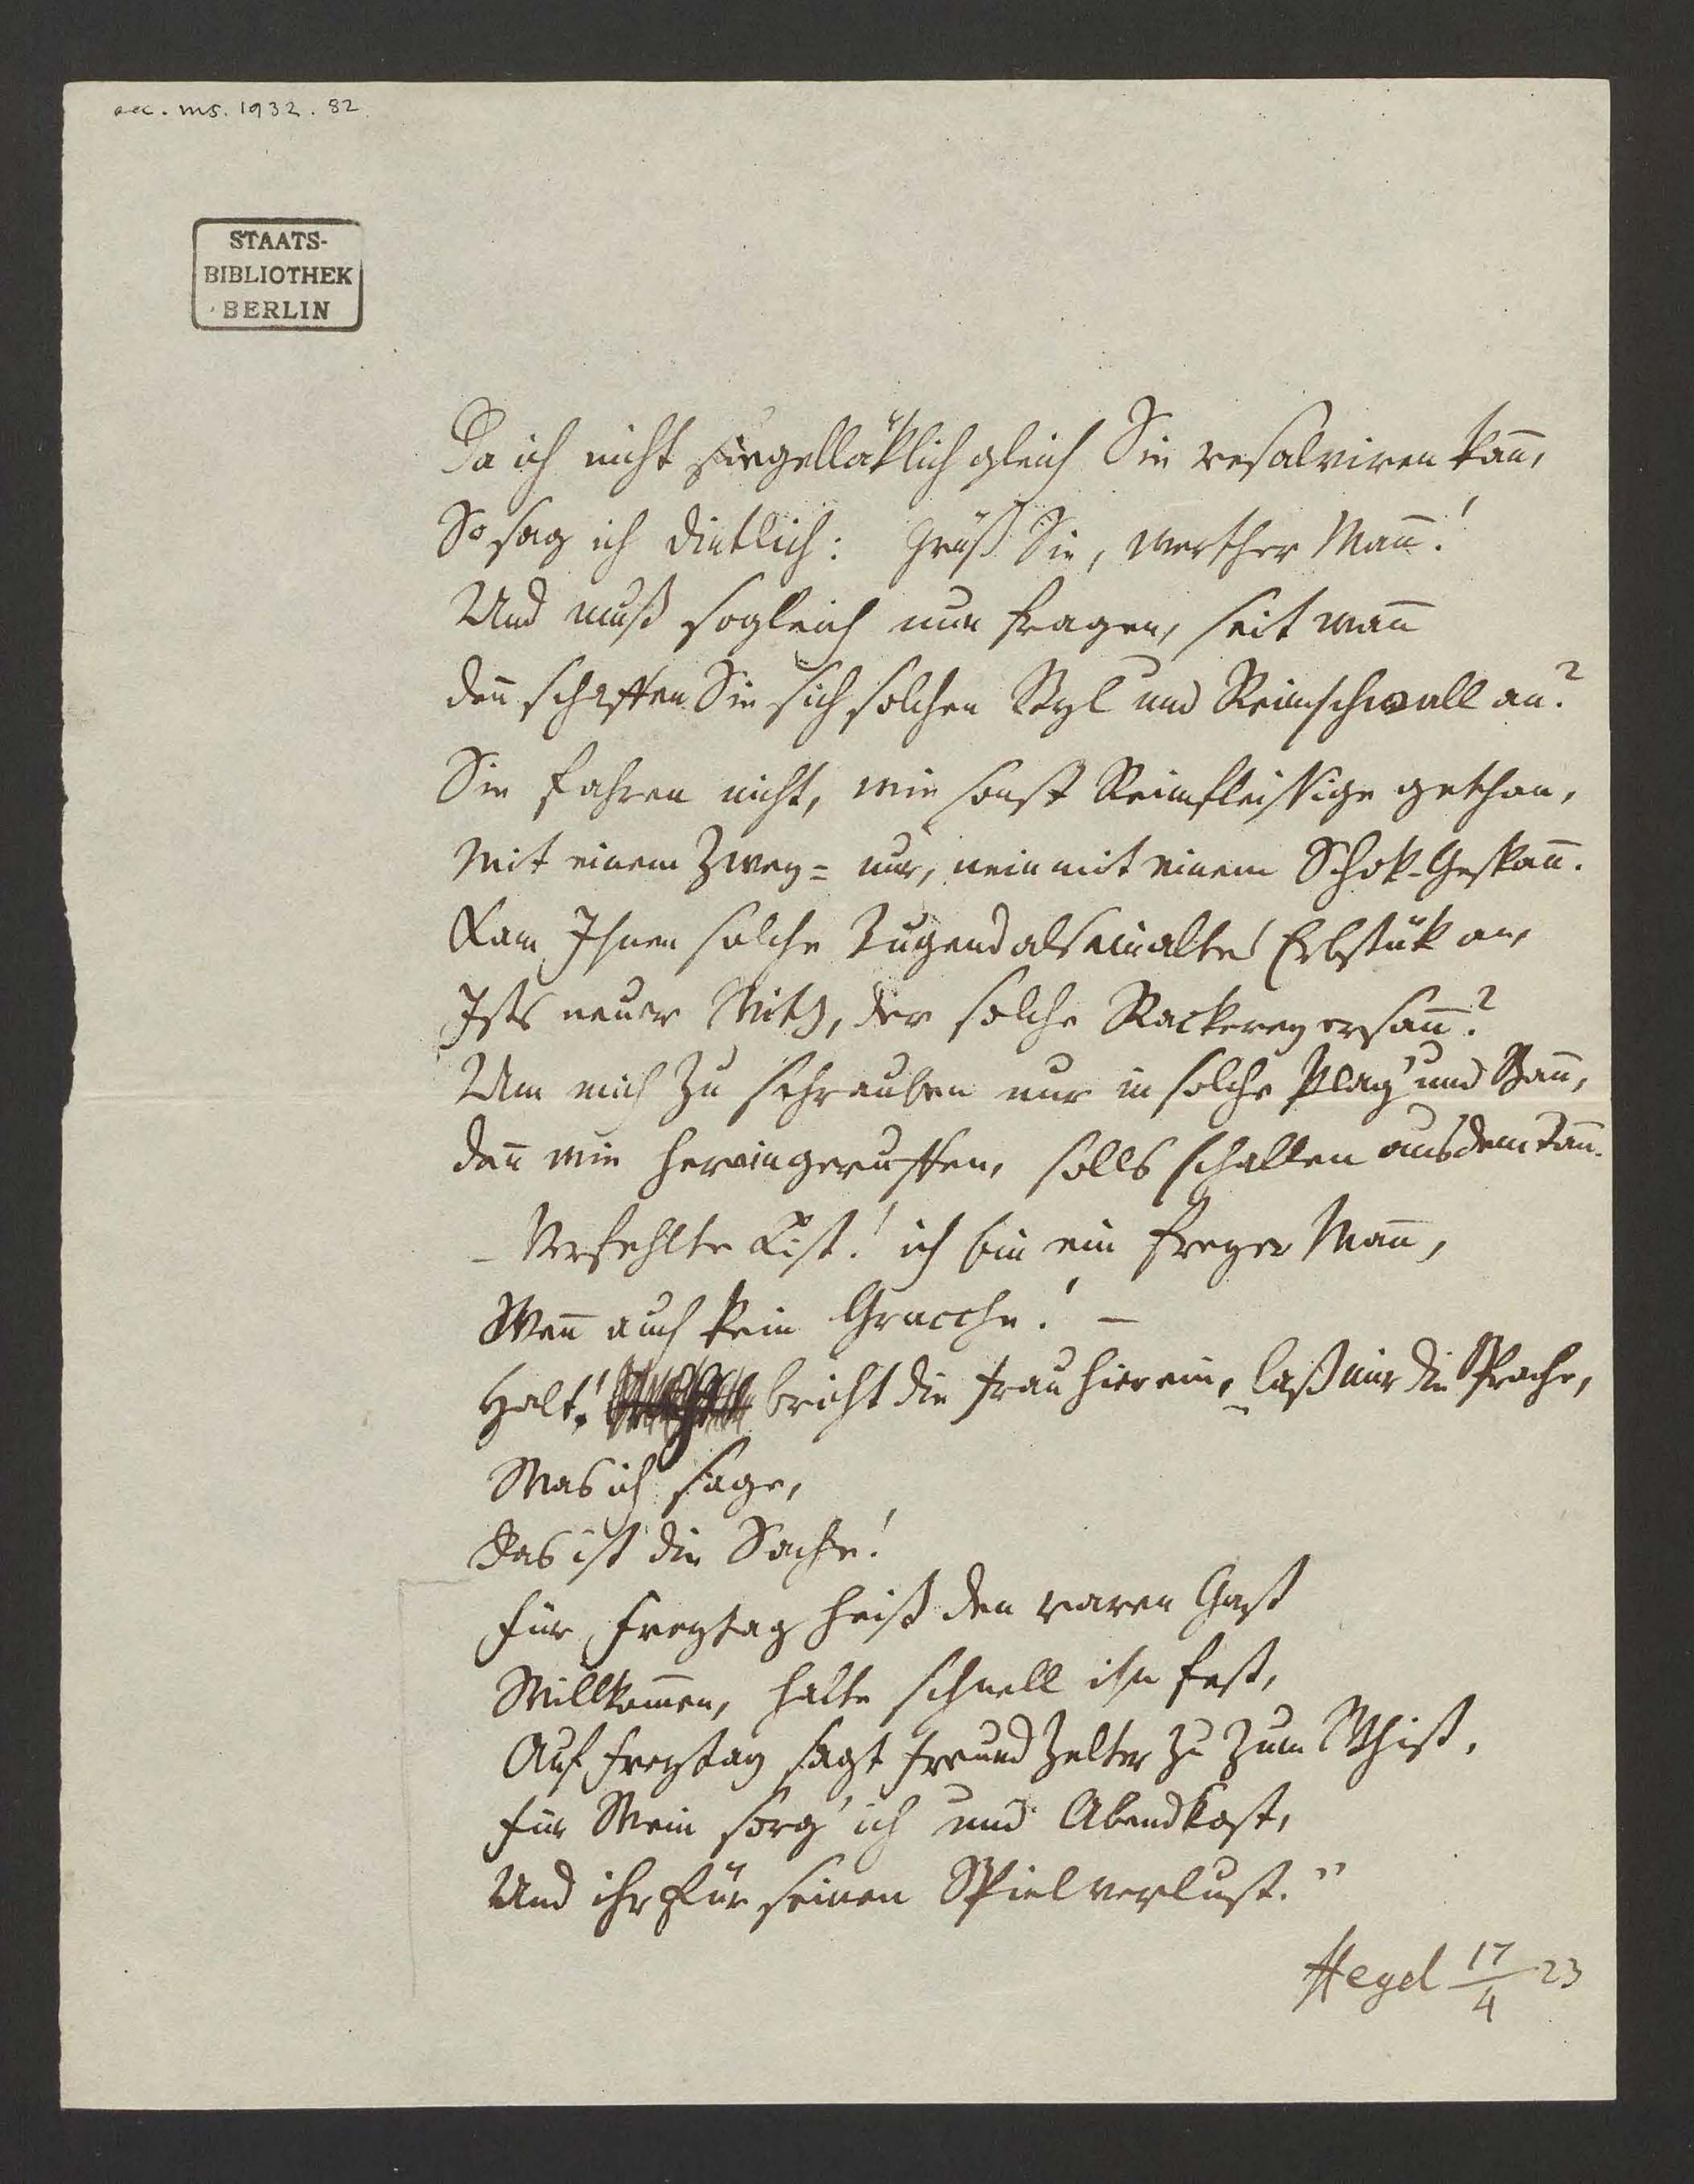 acc. ms. 1932. 82.
STAATS-
BIBLIOTHEK
BERLIN
Da ich nicht siegelläklich gleich Sie resalviren kan̄,
So sag ich dintlich: Grüß Sie, werther Man̄!
Und muß sogleich nun fragen, seit wan̄
den̄ schafften Sie sich solchen Styl und Reimschwall an?
Sie fahren nicht, wie sonst Reimfleissige gethan,
Mit einem Zwey= nur, nein mit einem Schok-Gespan̄.
Kam Ihnen solche Tugend als ein altes Erbstük an,
Ists neuer Witz, der solche Rackerey ersan̄?
Um mich zu schrauben nur in solche Plag' und Ban̄,
den̄ wie hereingeruffen, solls schallen aus dem Tan̄.
– Verfehlte List! ich bin ein freyer Man̄,
Wen̄ auch kein Gracche! –
Halt! bricht die Frau hier ein, laß mir die Sprache,
Was ich sage,
Das ist die Sache!
Für Freytag heiß den raren Gast
Willkom̄en, halte schnell ihn fest,
Auf Freytag sagt Freund Zelter zu zum Whist,
Für Wein sorg' ich und Abendkost,
Und ihr für seinen Spielverlust."
Hegel 17/4 23